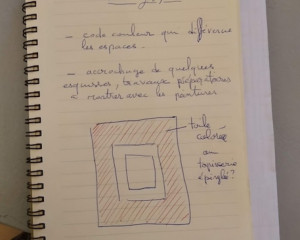 - code couleur qui différencie
les espaces.
- accrochage de quelques
esquisses, travaux préparatoires
à montrer avec les peintures.
toile
colorée
ou
tapisserie
épinglée ?